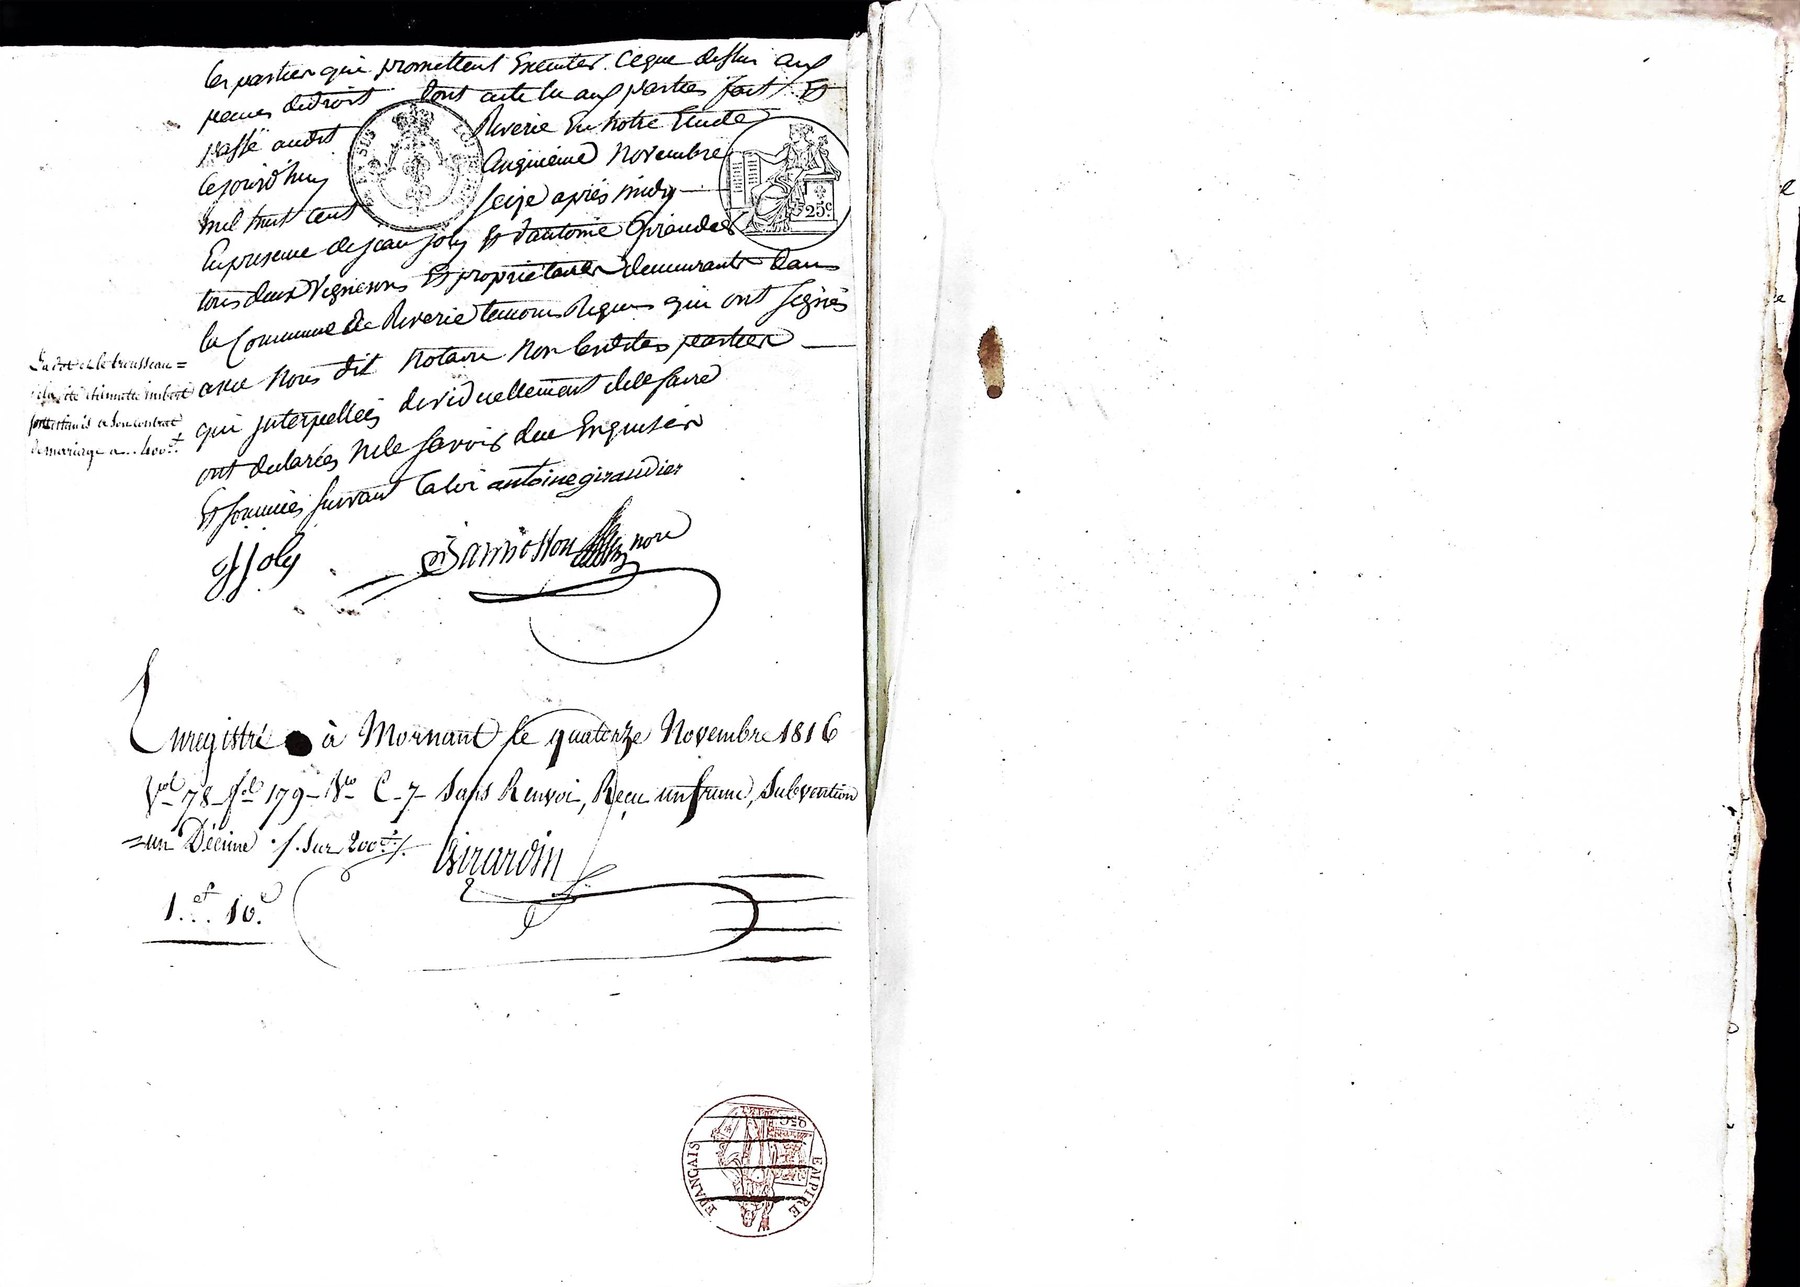 les parties qui promettent Executer ce que dessus aux
peines de droit Dont acte lu aux parties fait Et
passé audit Riverie En notre Etude
cejourd'huy onzieme Novembre
mil huit cent seize après midy
En presence de jean joly Et d'antoine Giraudier
tous deux vignerons Et proprietaires demeurants dans
la Commune de Riverie temoins Requis qui ont signés
avec nous dit notaire non lesdites parties
qui interpellées dividuellement de le faire
ont declarées ne le savoir due Enquises
Et sommées suivant la loi antoine girandier
La dot et le trousseau =
imbert
a son contrat
de mariage a .. 400 ₶
JJoly
not
25c
LOI
Enregistré à Mornant le quatorze Novembre 1816
Vol 78 fol 179 Vo C. 7 Sans Renvoi, Reçu un franc, Subvention
= un Décime ./. Sur 200 ₶ /.
Girardin
1.f 10.c
EMPIRE FRANÇAIS
25C